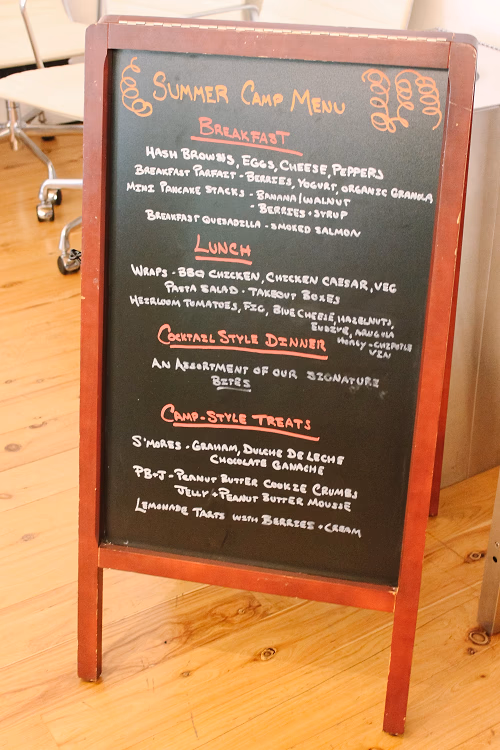 Summer Camp Menu
Breakfast
Hash Browns, Eggs, Cheese, Peppers
Breakfast Parfait - Berries, Yogurt, Organic Granola
Mini Pancake Stacks - Banana/Walnut
- Berries + Syrup
Breakfast Quesadilla - Smoked Salmon
Lunch
Wraps - BBQ Chicken, Chicken Caesar, Veg
Pasta Salad - Takeout Boxes
Heirloom Tomatoes, Fig, Blue Cheese, Hazelnuts,
Endive, Arugula
Honey - Chipotle
Vin
Cocktail Style Dinner
An Assortment of our Signature
Bites
Camp-Style Treats
S'mores - Graham, Dulche De Leche
Chocolate Ganache
PB+J - Peanut Butter Cookie Crumbs
Jelly + Peanut Butter Mousse
Lemonade Tarts with Berries + Cream